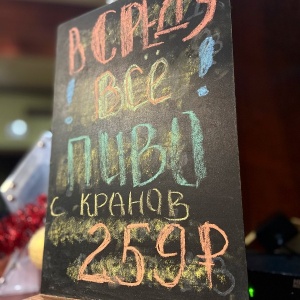 В СРЕДУ
! ВСЁ !
ПИВО
С КРАНОВ
259₽